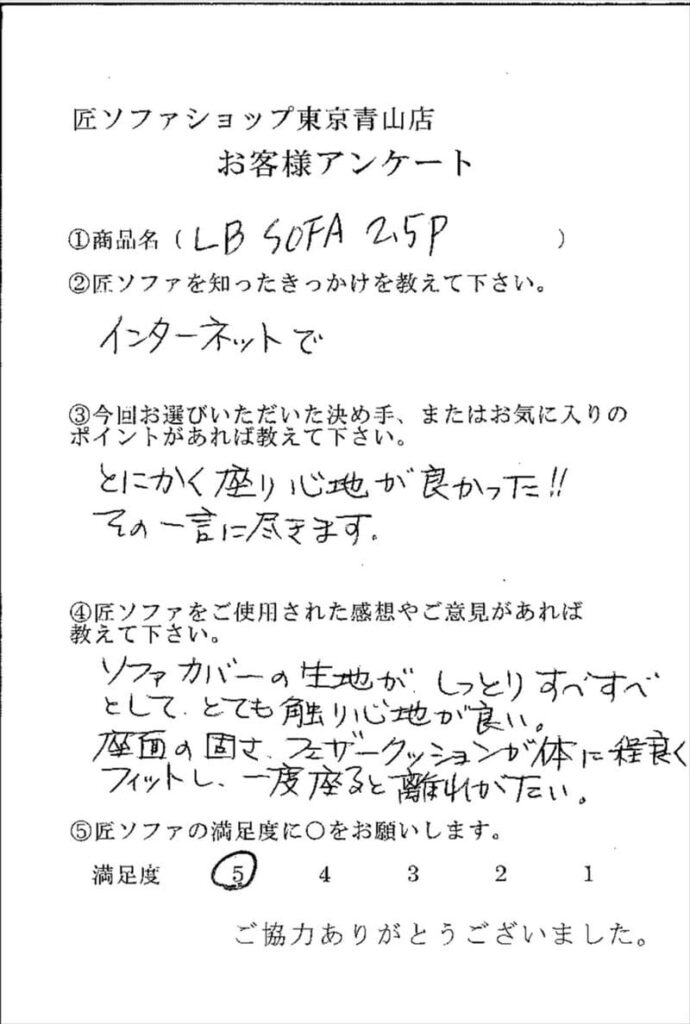 匠ソファショップ東京青山店
お客様アンケート
①商品名（LB SOFA 2.5P）
②匠ソファを知ったきっかけを教えて下さい。
インターネットで
③今回お選びいただいた決め手、またはお気に入りの
ポイントがあれば教えて下さい。
とにかく座り心地が良かった!!
その一言に尽きます。
④匠ソファをご使用された感想やご意見があれば
教えて下さい。
ソファカバーの生地が、しっとりすべすべ
として、とても触り心地が良い。
座面の固さ、フェザークッションが体に程良く
フィットし、一度座ると離れがたい。
⑤匠ソファの満足度に○をお願いします。
満足度 5 4 3 2 1
ご協力ありがとうございました。